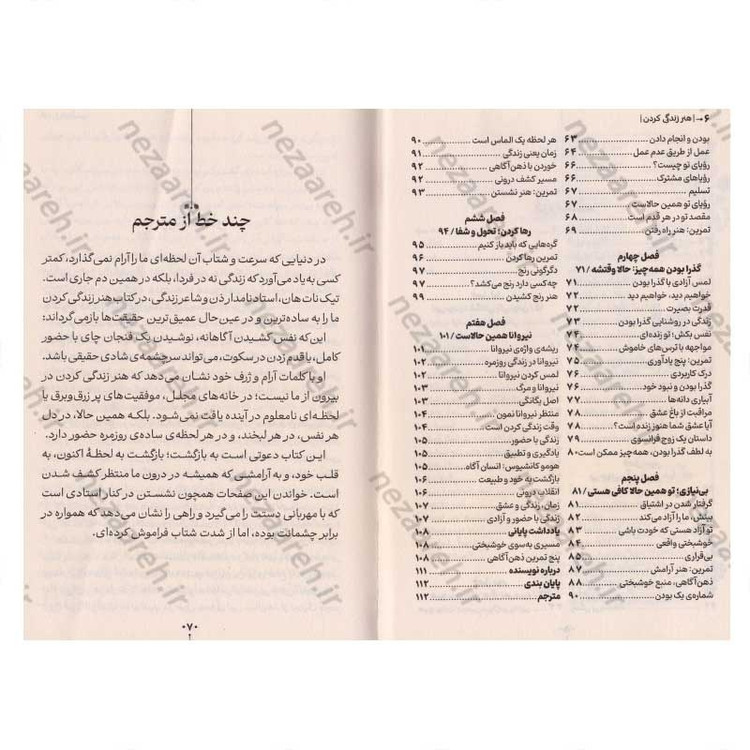 ۶ → | هنر زندگی کردن |
بودن و انجام دادن ........ ۶۳
عمل از طریق عدم عمل ........ ۶۴
رؤیای تو چیست؟ ........ ۶۶
رؤیاهای مشترک ........ ۶۶
تسلیم ........ ۶۷
رؤیای تو همین حالاست ........ ۶۷
مقصد تو در هر قدم است ........ ۶۸
تمرین: هنر راه رفتن ........ ۶۹
فصل چهارم
گذرا بودن همه‌چیز: حالا وقتشه / ۷۱
لمس آزادی با گذرا بودن ........ ۷۱
خواهیم دید، خواهیم دید ........ ۷۲
قدرت بصیرت ........ ۷۲
زندگی در روشنایی گذرا بودن ........ ۷۳
نفس بکش؛ تو زنده‌ای ........ ۷۴
مواجهه با ترس‌های خاموش ........ ۷۴
تمرین: پنج یادآوری ........ ۷۵
درک کاربردی ........ ۷۶
گذرا بودن و نبود خود ........ ۷۶
آبیاری دانه‌ها ........ ۷۷
مراقبت از باغ عشق ........ ۷۸
آیا عشق شما هنوز زنده است؟ ........ ۷۸
داستان یک زوج فرانسوی ........ ۷۹
به لطف گذرا بودن، همه‌چیز ممکن است ۸۰
فصل پنجم
بی‌نیازی؛ تو همین حالا کافی هستی / ۸۱
گرفتار شدن در اشتیاق ........ ۸۱
بینش، ما را آزاد می‌کند ........ ۸۲
تو آزاد هستی که خودت باشی ........ ۸۳
خوشبختی واقعی ........ ۸۴
بی‌قراری ........ ۸۵
تمرین: هنر آرامش ........ ۸۷
ذهن‌آگاهی، منبع خوشبختی ........ ۸۸
شماره‌ی یک بودن ........ ۹۰
هر لحظه یک الماس است ........ ۹۰
زمان یعنی زندگی ........ ۹۱
خوردن با ذهن‌آگاهی ........ ۹۲
مسیر کشف درونی ........ ۹۲
تمرین: هنر نشستن ........ ۹۳
فصل ششم
رها کردن؛ تحول و شفا / ۹۴
گره‌هایی که باید باز کنیم ........ ۹۵
تمرین رها کردن ........ ۹۶
دگرگونی رنج ........ ۹۷
چه کسی دارد رنج می‌کشد؟ ........ ۹۷
هنر رنج کشیدن ........ ۹۹
فصل هفتم
نیروانا همین حالاست / ۱۰۱
ریشه‌ی واژه‌ی نیروانا ........ ۱۰۱
نیروانا در زندگی روزمره ........ ۱۰۲
لمس کردن نیروانا ........ ۱۰۲
نیروانا و مرگ ........ ۱۰۳
اصل یگانگی ........ ۱۰۳
منتظر نیروانا نمون ........ ۱۰۴
وقت زندگی کردن است ........ ۱۰۴
زندگی با حضور ........ ۱۰۵
یادگیری و تطبیق ........ ۱۰۵
هومو کانشیوس: انسان آگاه ........ ۱۰۵
بازگشت به خود و طبیعت ........ ۱۰۶
انقلاب درونی ........ ۱۰۶
زمان، زندگی و عشق ........ ۱۰۷
زندگی با حضور و آزادی ........ ۱۰۷
یادداشت پایانی ........ ۱۰۸
مسیری به‌سوی خوشبختی ........ ۱۰۸
پنج تمرین ذهن‌آگاهی ........ ۱۰۸
درباره نویسنده ........ ۱۱۱
پایان بندی ........ ۱۱۲
مترجم ........ ۱۱۲
چند خط از مترجم
در دنیایی که سرعت و شتاب آن لحظه‌ای ما را آرام نمی‌گذارد، کمتر
کسی به یاد می‌آورد که زندگی نه در فردا، بلکه در همین دم جاری است.
تیک نات هان، استاد نامدار ذن و شاعر زندگی، در کتاب هنر زندگی کردن
ما را به ساده‌ترین و در عین‌حال عمیق‌ترین حقیقت‌ها بازمی‌گرداند:
این که نفس کشیدن آگاهانه، نوشیدن یک فنجان چای با حضور
کامل، یا قدم زدن در سکوت، می‌تواند سرچشمه‌ی شادی حقیقی باشد.
او با کلمات آرام و ژرف خود نشان می‌دهد که هنر زندگی کردن در
بیرون از ما نیست؛ در خانه‌های مجلل، موفقیت‌های پر زرق‌وبرق یا
لحظه‌ای نامعلوم در آینده یافت نمی‌شود. بلکه همین حالا، در دل
هر نفس، در هر لبخند، و در هر لحظه‌ی ساده‌ی روزمره حضور دارد.
این کتاب دعوتی است به بازگشت؛ بازگشت به لحظهٔ اکنون، به
قلب خود، و به آرامشی که همیشه در درون ما منتظر کشف شدن
است. خواندن این صفحات همچون نشستن در کنار استادی است
که با مهربانی دستت را می‌گیرد و راهی را نشان می‌دهد که همواره در
برابر چشمانت بوده، اما از شدت شتاب فراموش کرده‌ای.
۰۷۰
nezaareh.ir